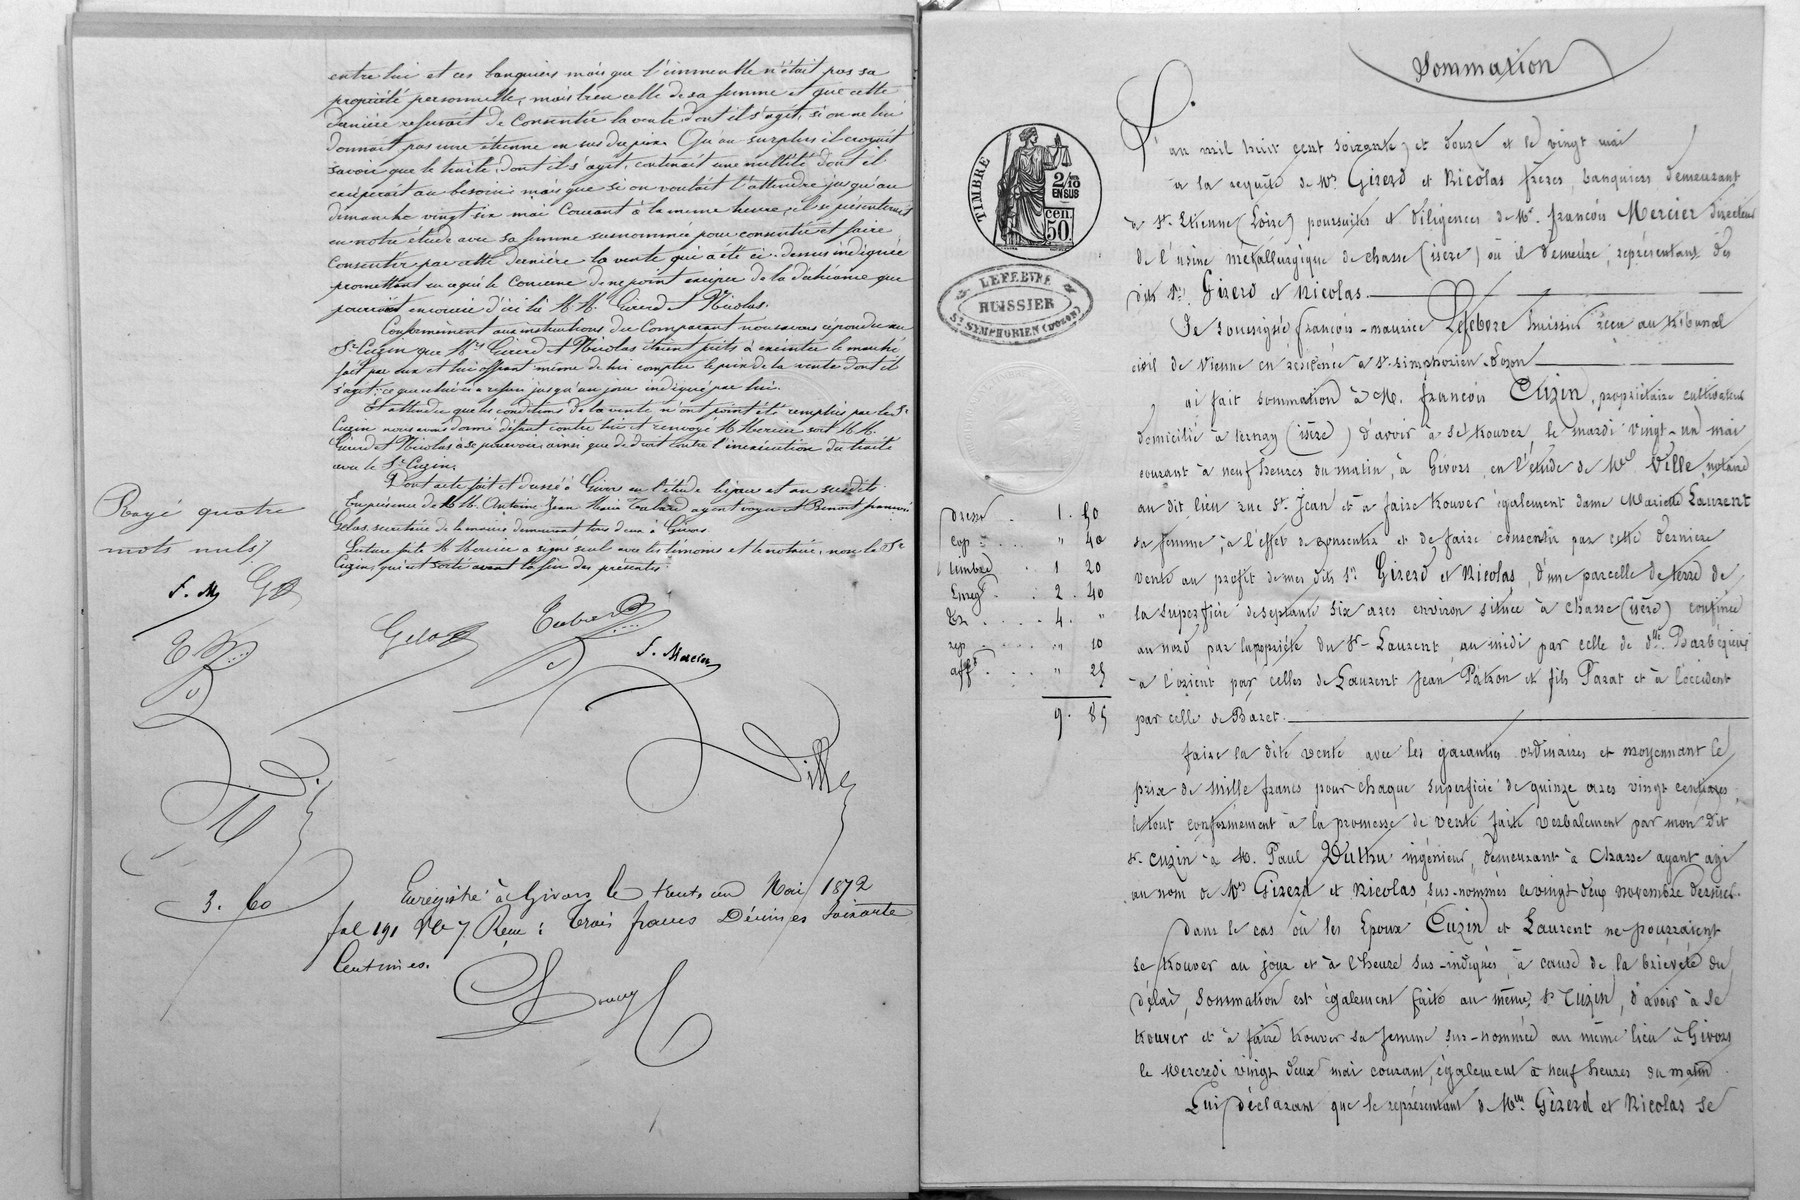 entre lui et ces banquiers mais que l'immeuble n'était pas sa
propriété personnelle, mais bien celle de sa femme et que cette
dernière refusait de consentir la vente dont il s'agit, si on ne lui
donnait pas une étrenne en sus du prix. Qu'au surplus il croyait
savoir que le traité dont il s'agit, contenait une nullité dont il
exciperait au besoin; mais que si on voulait l'attendre jusqu'au
dimanche vingt six mai courant à la même heure, il se présenterait
en notre étude avec sa femme susnommée pour consentir et faire
consentir par cette dernière la vente qui a été ci-dessus indiquée
promettant en ce qui le concerne de ne point exciper de la déchéance que
pourraient encourir d'ici là M.M. Girerd et Nicolas.
Conformément aux instructions du Comparant nous avons répondu au
Sr Cuzin que Mrs Girerd et Nicolas étaient prêts à exécuter le marché
fait par eux et lui offrant même de lui compter le prix de la vente dont il
s'agit; ce que celui-ci a refusé jusqu'au jour indiqué par lui.
Et attendu que les conditions de la vente n'ont point été remplies par le Sr
Cuzin nous avons donné défaut contre lui et renvoyé M Mercier soit M.M.
Girerd et Nicolas à se pourvoir ainsi que de droit contre l'inexécution du traité
avec le Sr Cuzin.
Dont acte fait et dressé à Givors en l'étude les jour et an susdits
En présence de M.M. Antoine Jean Marie Tabard agent voyer et Benoit
Gelas, secrétaire de la mairie demeurant tous deux à Givors.
Lecture faite M Mercier a signé seul avec les témoins et le notaire, non le Sr
Cuzin, qui est sorti avant la fin des présentes.
Rayé quatre
mots nuls
f. M. G
Gelas
f. Mercier
Ville
3. 60
Enregistré à Givors le trente un Mai 1872
fol 191 Vo C 7. Reçu: trois francs Décimes soixante
Centimes.
Sommation
L'an mil huit cent soixante et douze et le vingt mai
a la requête de Mrs Girerd et Nicolas frères, banquiers demeurant
à St Etienne (Loire) poursuites et diligences de Mr. françois Mercier directeur
de l'usine métallurgique de chasse (isère) où il demeure, représentant des
dits Srs Girerd et Nicolas.
Je soussigné françois-maurice Lefebvre huissier reçu au tribunal
civil de Vienne en résidence à St-simphorien-d'ozon
ai fait sommation à M. françois Cuzin, propriétaire cultivateur
domicilié à ternay (isère) d'avoir à se trouver, le mardi vingt-un mai
courant à neuf heures du matin, à Givors, en l'étude de Me Ville, notaire
au dit lieu rue St. Jean et à faire trouver également dame Mariette Laurent
sa femme, à l'effet de consentir et de faire consentir par cette dernière
vente au profit de mes dits Srs Girerd et Nicolas, d'une parcelle de terre de
la superficie de septante six ares environ située à Chasse (isère) confinée
au nord par la propriété du Sr Laurent, au midi par celle de dlle. Barbéquieu
à l'orient par celles de Laurent Jean Patron et fils Parat et à l'occident
par celle de Bazet.
faire la dite vente avec les garanties ordinaires et moyennant le
prix de mille francs pour chaque superficie de quinze ares vingt centiares,
le tout conformément à la promesse de vente faite verbalement par mon dit
Sr. Cuzin à M. Paul Duthu ingénieur, demeurant à Chasse ayant agi
au nom de Mrs Girerd et Nicolas, sus-nommés le vingt deux novembre dernier.
Dans le cas où les Epoux Cuzin et Laurent ne pourraient
se trouver au jour et à l'heure sus-indiqués, à cause de la brièveté du
délai, Sommation est également faite au même Sr Cuzin, d'avoir à se
trouver et à faire trouver sa femme sus-nommée au même lieu à Givors
le Mercredi vingt deux mai courant, également à neuf heures du matin
Lui déclarant que le représentant de Mrs. Girerd et Nicolas se
TIMBRE
2/10
EN SUS
50 cen.
LEFEBVRE
HUISSIER
St SYMPHORIEN (D'OZON)
Dresst . 1. 50
cop . . . " 40
timbre . . 1 20
Enregt . . 2. 40
tr . . . . 4. "
rep . . . " 10
afft . . . " 25
9. 85